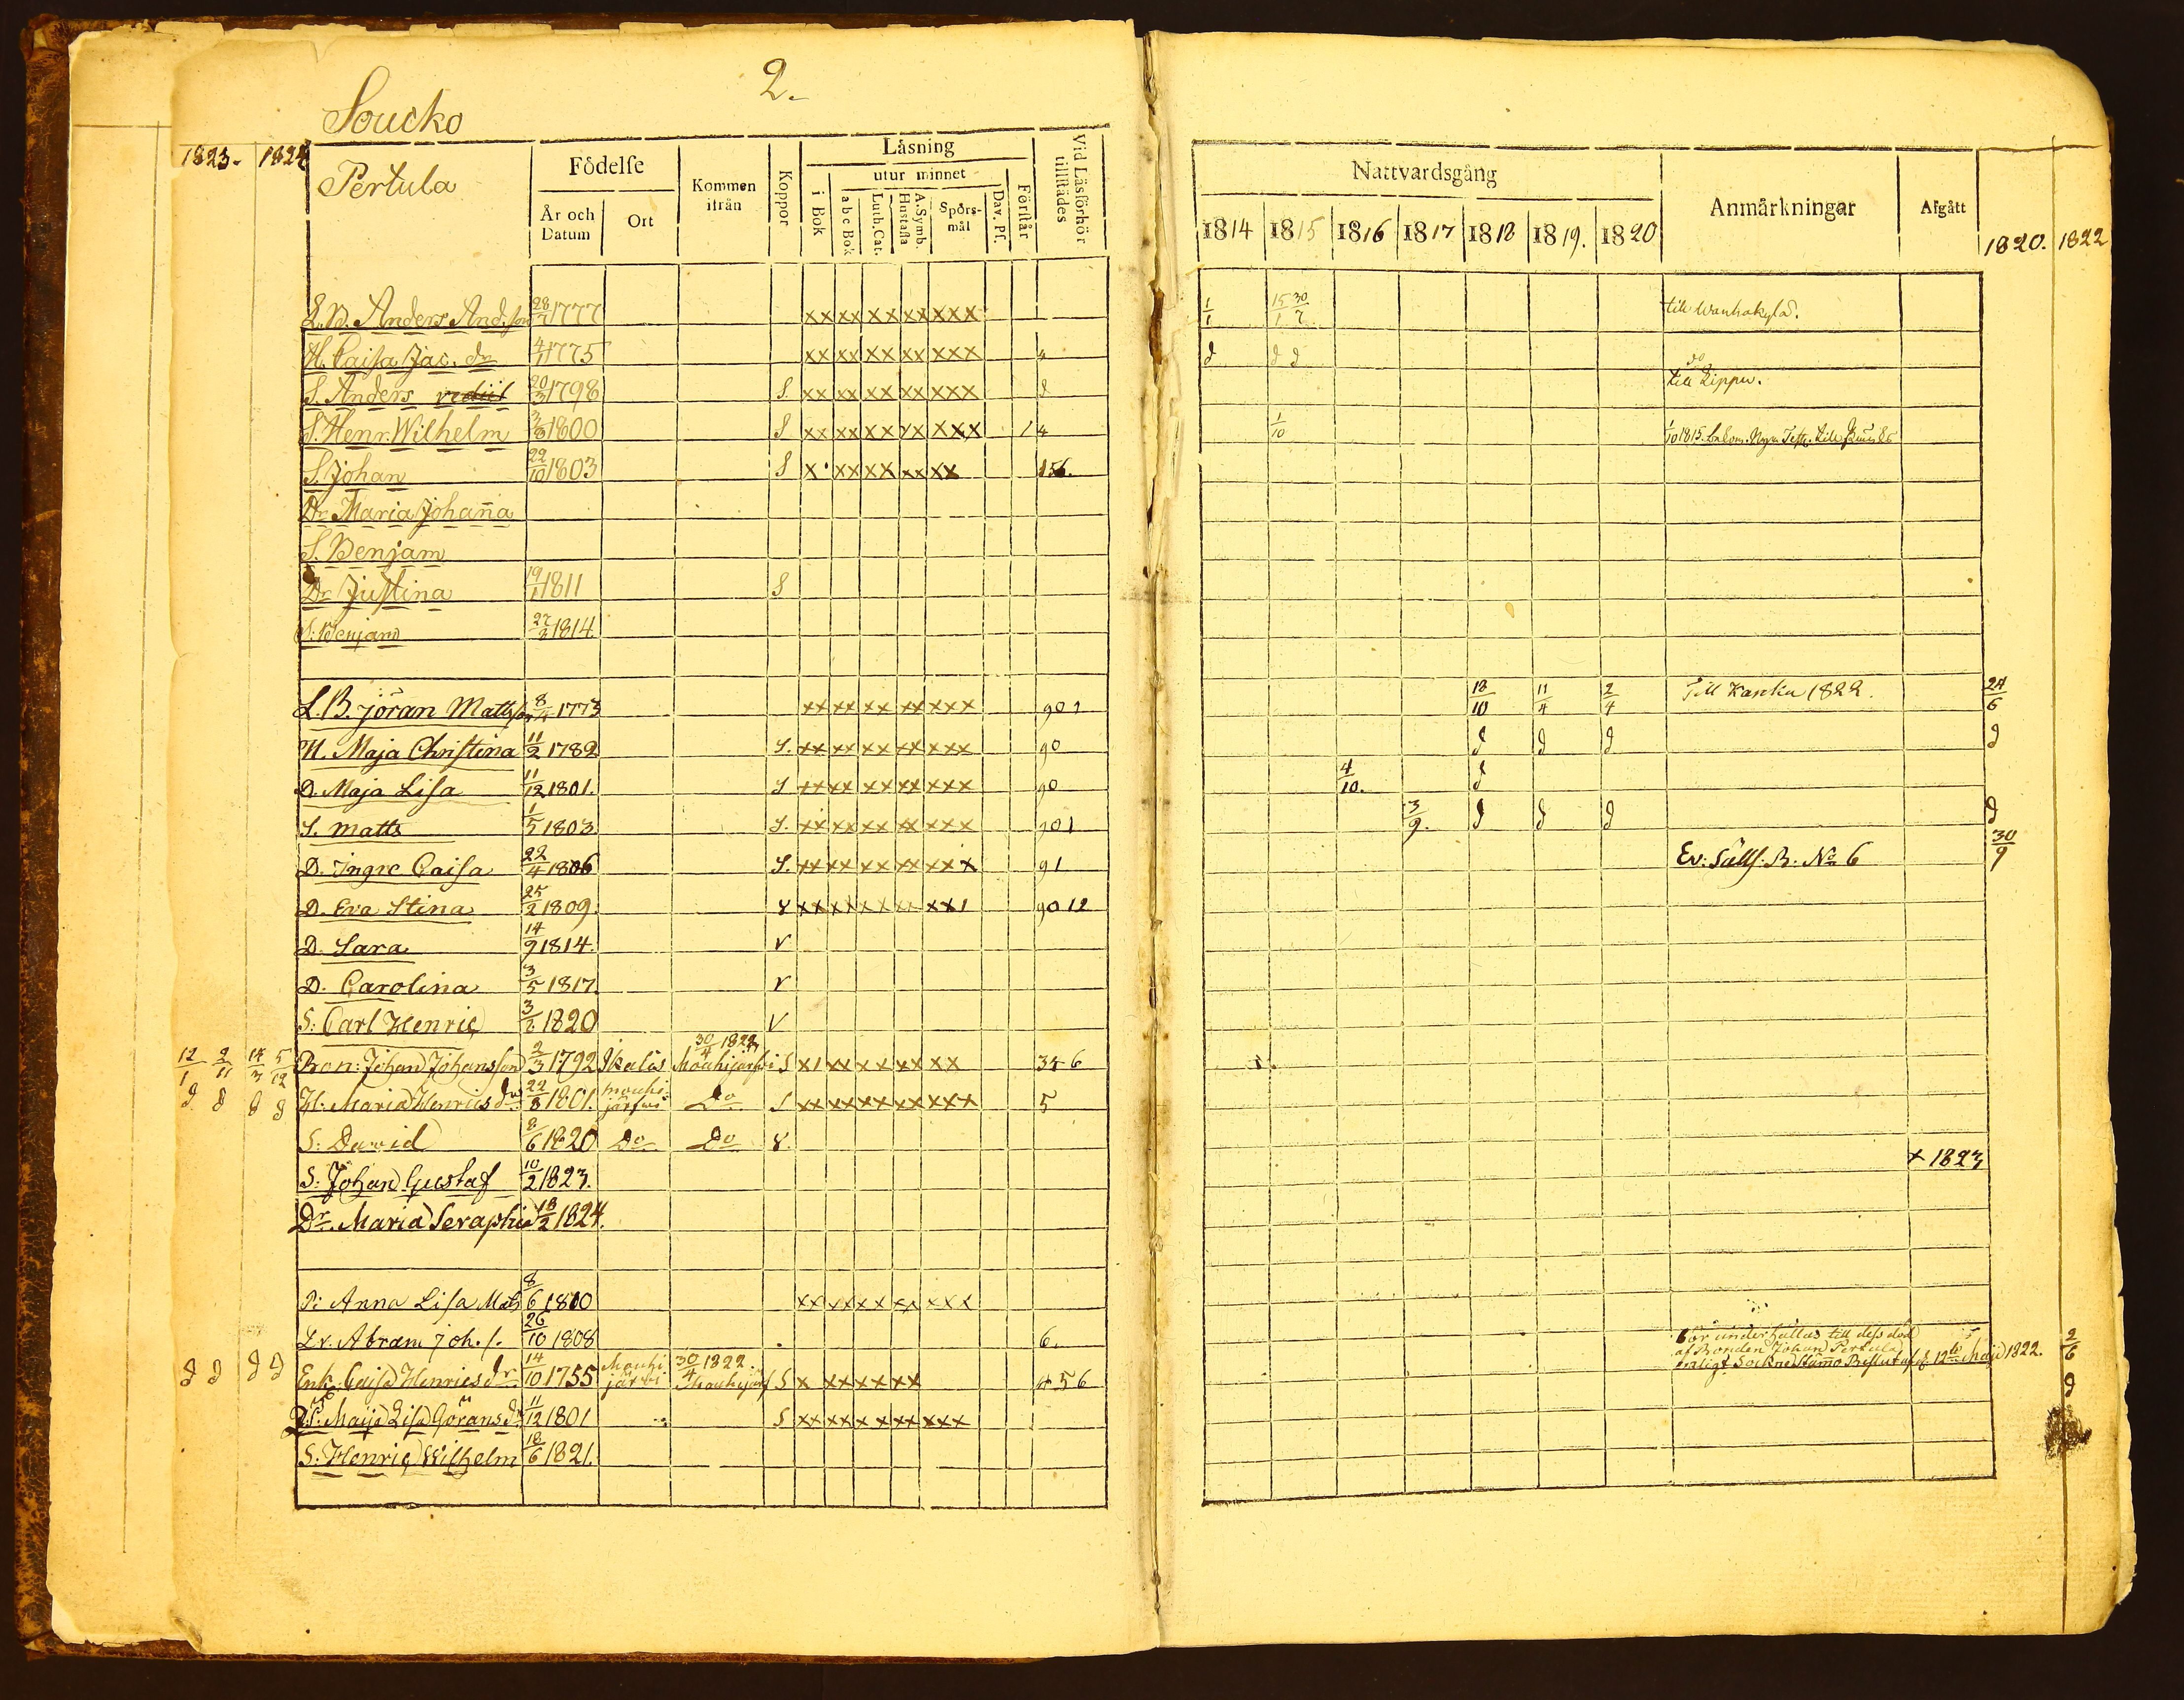 2.
Soucko
1823. 1824
Pertula
Födelse
År och Datum
Ort
Kommen ifrån
Koppor
Läsning
i Bok
utur minnet
abc Bok
Luth. Cat.
Hustafla
A. Symb.
Spörsmål
Dav. Ps.
Förstår
Vid Läsförhör tillstädes
Nattvardsgång
1814 1815 1816 1817 1818 1819. 1820
Anmärkningar
Afgått
1820. 1822
L.B. Anders And.son 1777 xx xx xx xx xxx 1/1 15/1 30/7 till Wanhakylä.
H. Caisa Jac. dr 4/1 1775 xx xx xx xx xxx 4 d d d do
S. Anders 20/3 1798 S. xx xx xx xx xxx d till Rippu.
S. Henr. Wilhelm 3/8 1800 S xx xx xx xx xxx 1 4 1/10 1/10 1815.
S. Johan 22/10 1803 S x xx xx xx xx 156.
Dr Maria Johaña
S. Benjam
Dr Justina 19/1 1811 S
S. Benjam 27/3 1814
L.B. Jöran Mattsson 8/4 1773 xx xx xx xx xxx 901 18/10 11/4 2/4 Till Kaskia 1822. 24/6
H. Maja Christina 11/2 1782 S. xx xx xx xx xxx 90 d d d d
D. Maja Lisa 11/12 1801. S xx xx xx xx xxx 90 4/10. d
S. Matts 1/5 1803 S. xx xx xx xx xxx 901 3/9. d d d d
D. Ingre Caisa 22/4 1806 S. xx xx xx xx xxx 91 Ev: Sällsk. B. No 6 30/9
D. Eva Stina 25/2 1809. 8 xx xx xx xx xx1 9012
D. Sara 14/9 1814. v
D. Carolina 3/5 1817. v
S. Carl Henric 3/2 1820 v
12/1 2/11 14/3 5/12 Bon: Johan Johansson 2/3 1792 Ikalis 30/4 1822 Mouhijärfwi S x1 xx xx xx xx 346
d d d d H. Maria Henrics dr 22/8 1801. Mouhijärfwi Do S xx xx xx xx xxx 5
S: Dawid 8/6 1820 Do Do 8.
S: Johan Gustaf 10/2 1823. + 1823
Dr. Maria Seraphia 18/2 1824.
Pi Anna Lisa Mats 8/6 1800 xx xx xx xx xxx
Lr. Abram Joh. s. 26/10 1808 6.
Bör underhållas till dess död
af Bonden Johan Pertula
enligt Sockne Stämo Beslut af d 12te Maji 1822. 2/6
d d d d Enk. Caisa Henricsdr 14/10 1755 Mouhijärwi 30/4 1822. Mouhijärf S x xx xx xx 456 d
Maija Lisa Göransdr 11/12 1801 S xx xx xx xx xxx
S. Henric Wilhelm 18/6 1821.